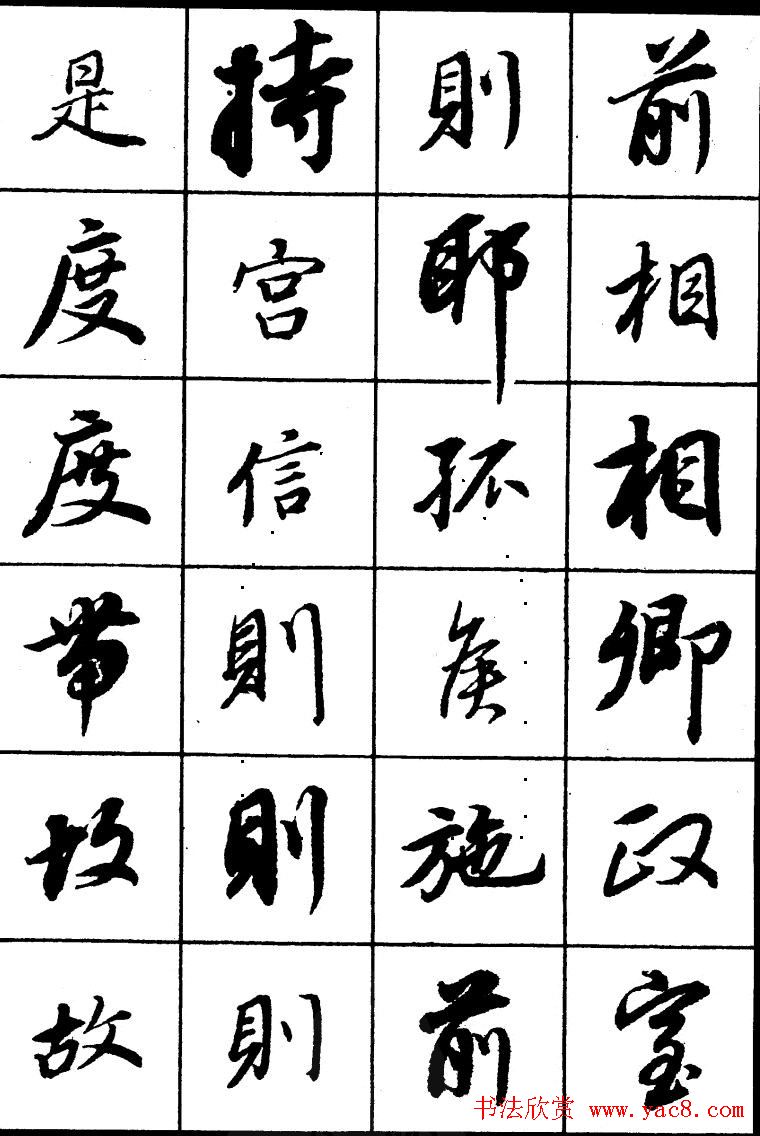 是度度帶故故
持宮信則則則
則耶孤侯施前
前相相卿政室
书法欣赏 www.yac8.com